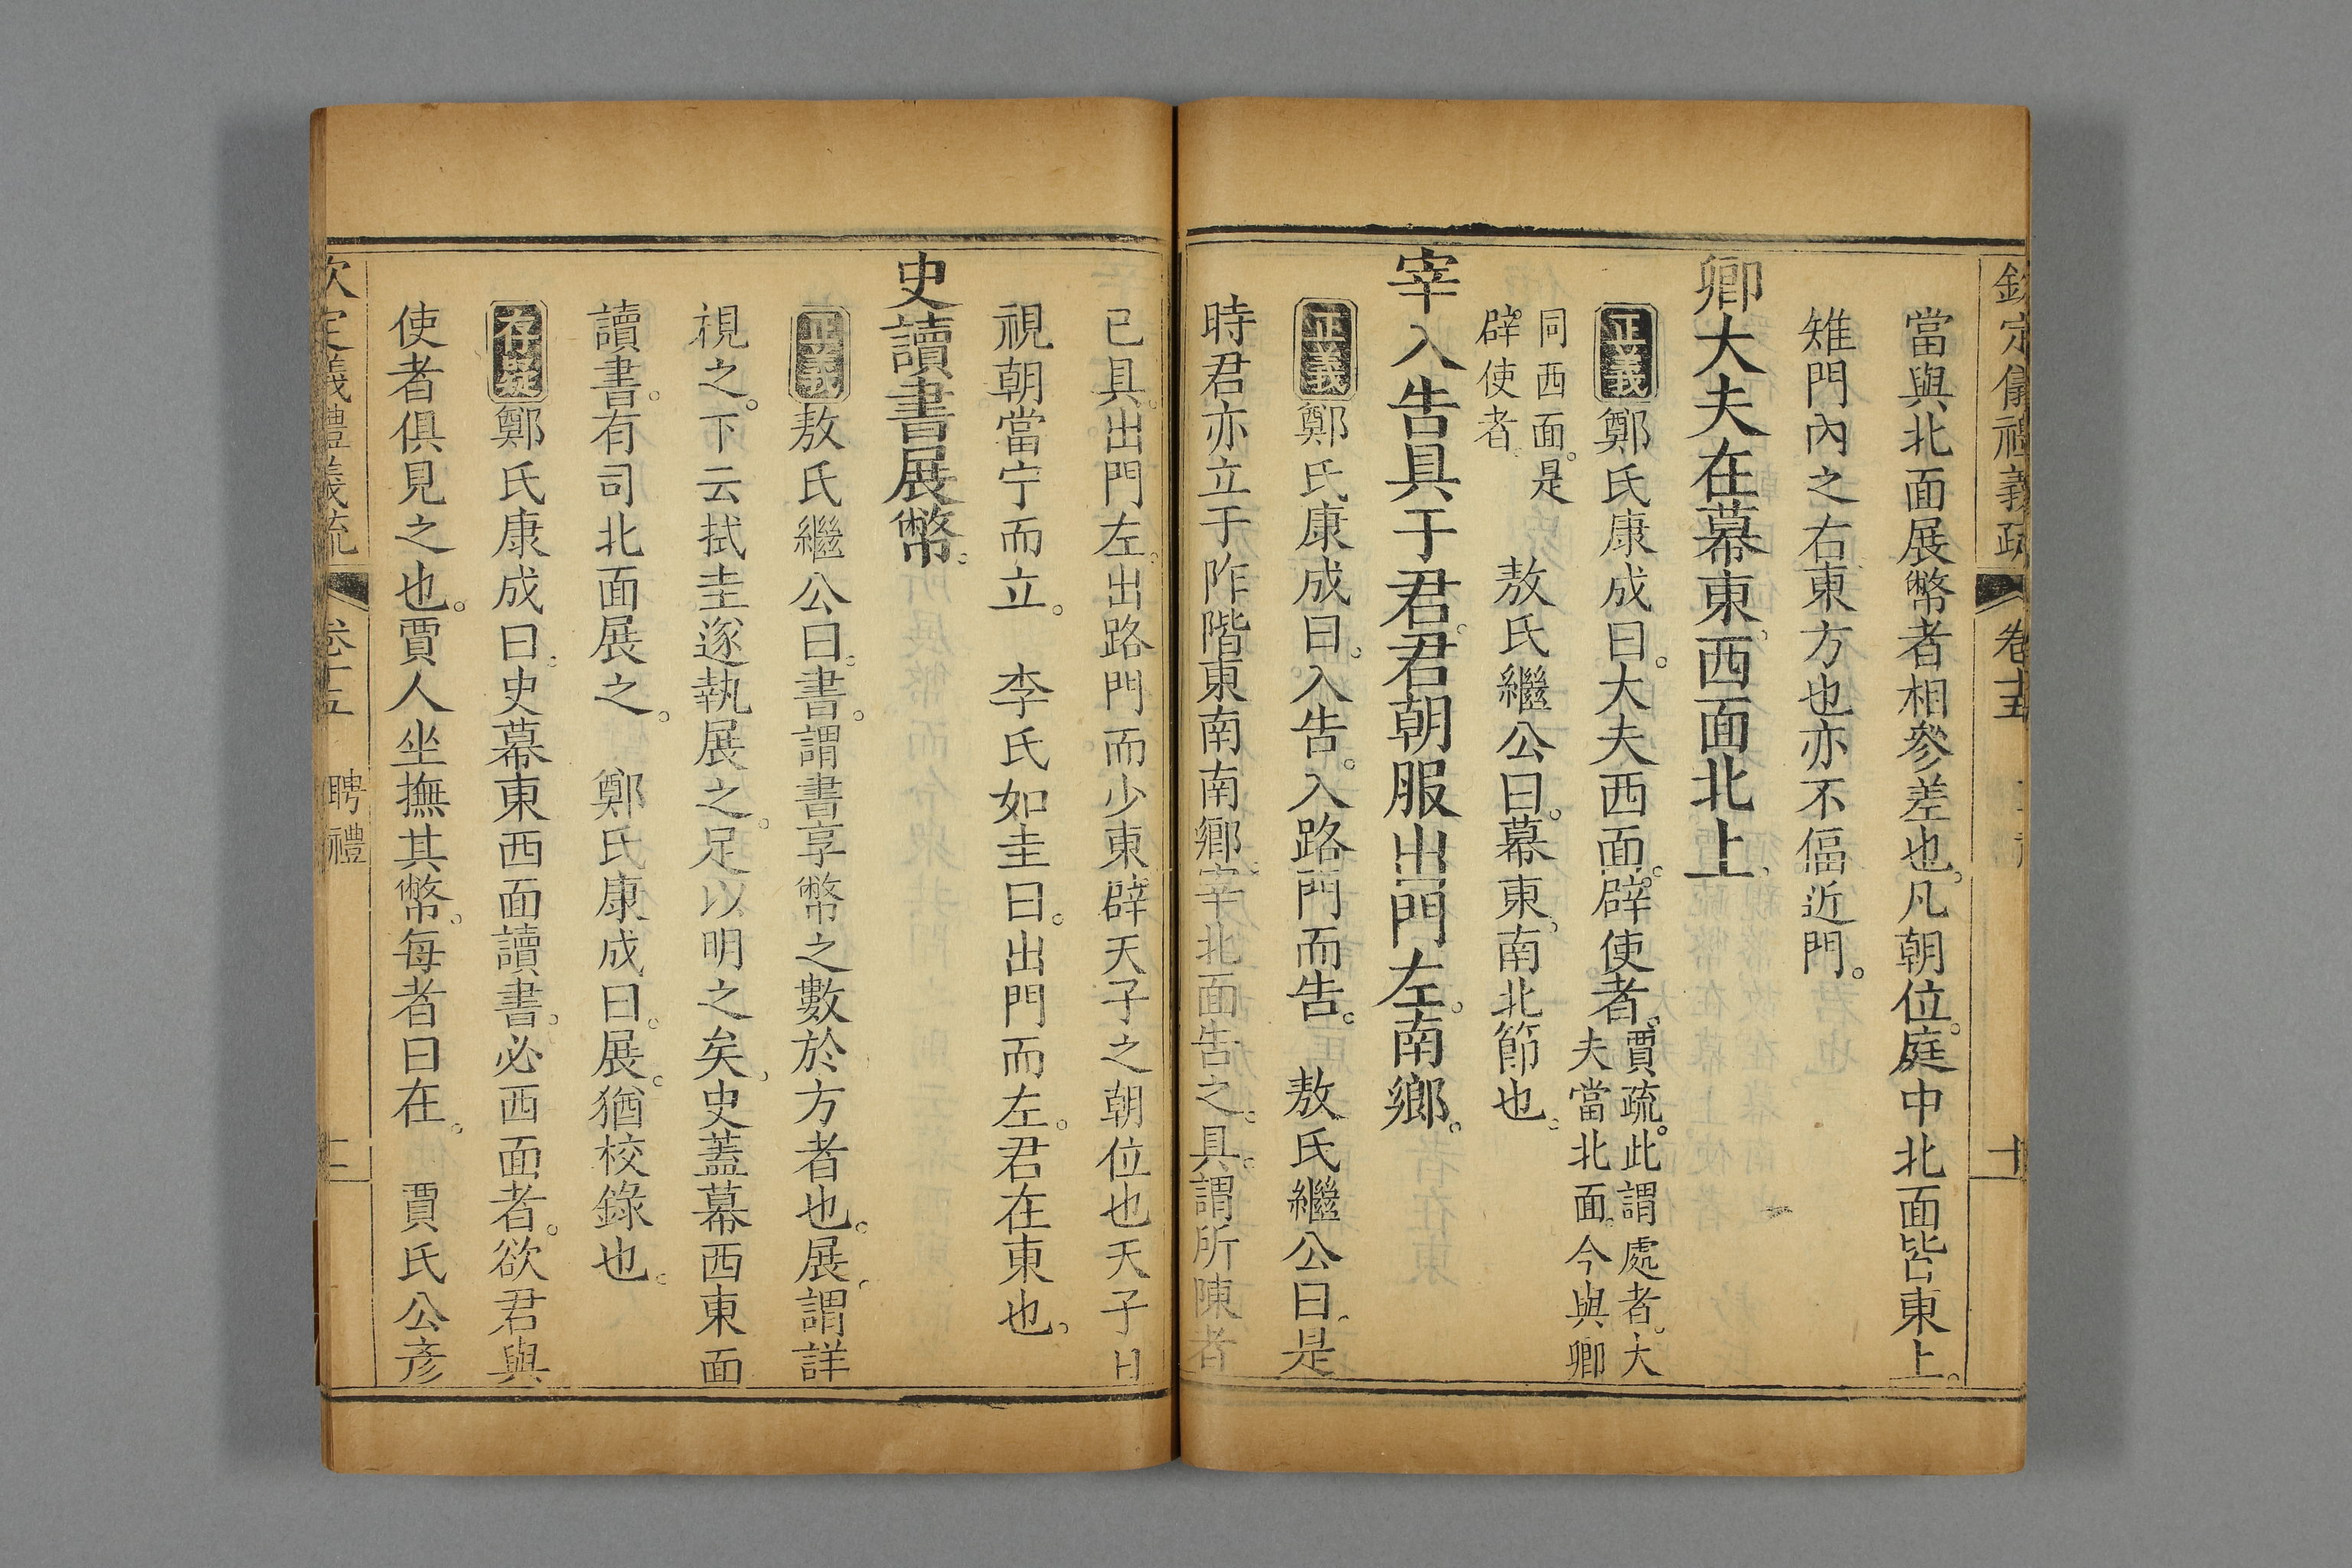 欽定儀禮義疏 卷十五
當與北面展幣者相參差也。凡朝位。庭中北面皆東上。
雉門內之右東方也亦不偪近門。
卿大夫在幕東。西面北上。
正義鄭氏康成曰。大夫西面。辟使者。賈疏。此謂處者。大夫當北面。今與卿
同西面。是辟使者。 敖氏繼公曰。幕東。南北節也。
宰入告具于君。君朝服出門左。南鄉。
正義鄭氏康成曰。入告。入路門而告。 敖氏繼公曰。是
時君亦立于阼階東南南鄉。宰北面告之。具。謂所陳者
已具。出門左。出路門而少東。辟天子之朝位也天子日
視朝當宁而立。 李氏如圭曰。出門而左。君在東也。
史讀書展幣。
正義敖氏繼公曰。書。謂書享幣之數於方者也。展。謂詳
視之。下云拭圭遂執展之。足以明之矣。史蓋幕西東面
讀書。有司北面展之。 鄭氏康成曰。展。猶校錄也。
存疑鄭氏康成曰。史幕東西面讀書。必西面者。欲君與
使者俱見之也。賈人坐撫其幣。每者曰在。 賈氏公彥
欽定儀禮義疏 卷十五 聘禮